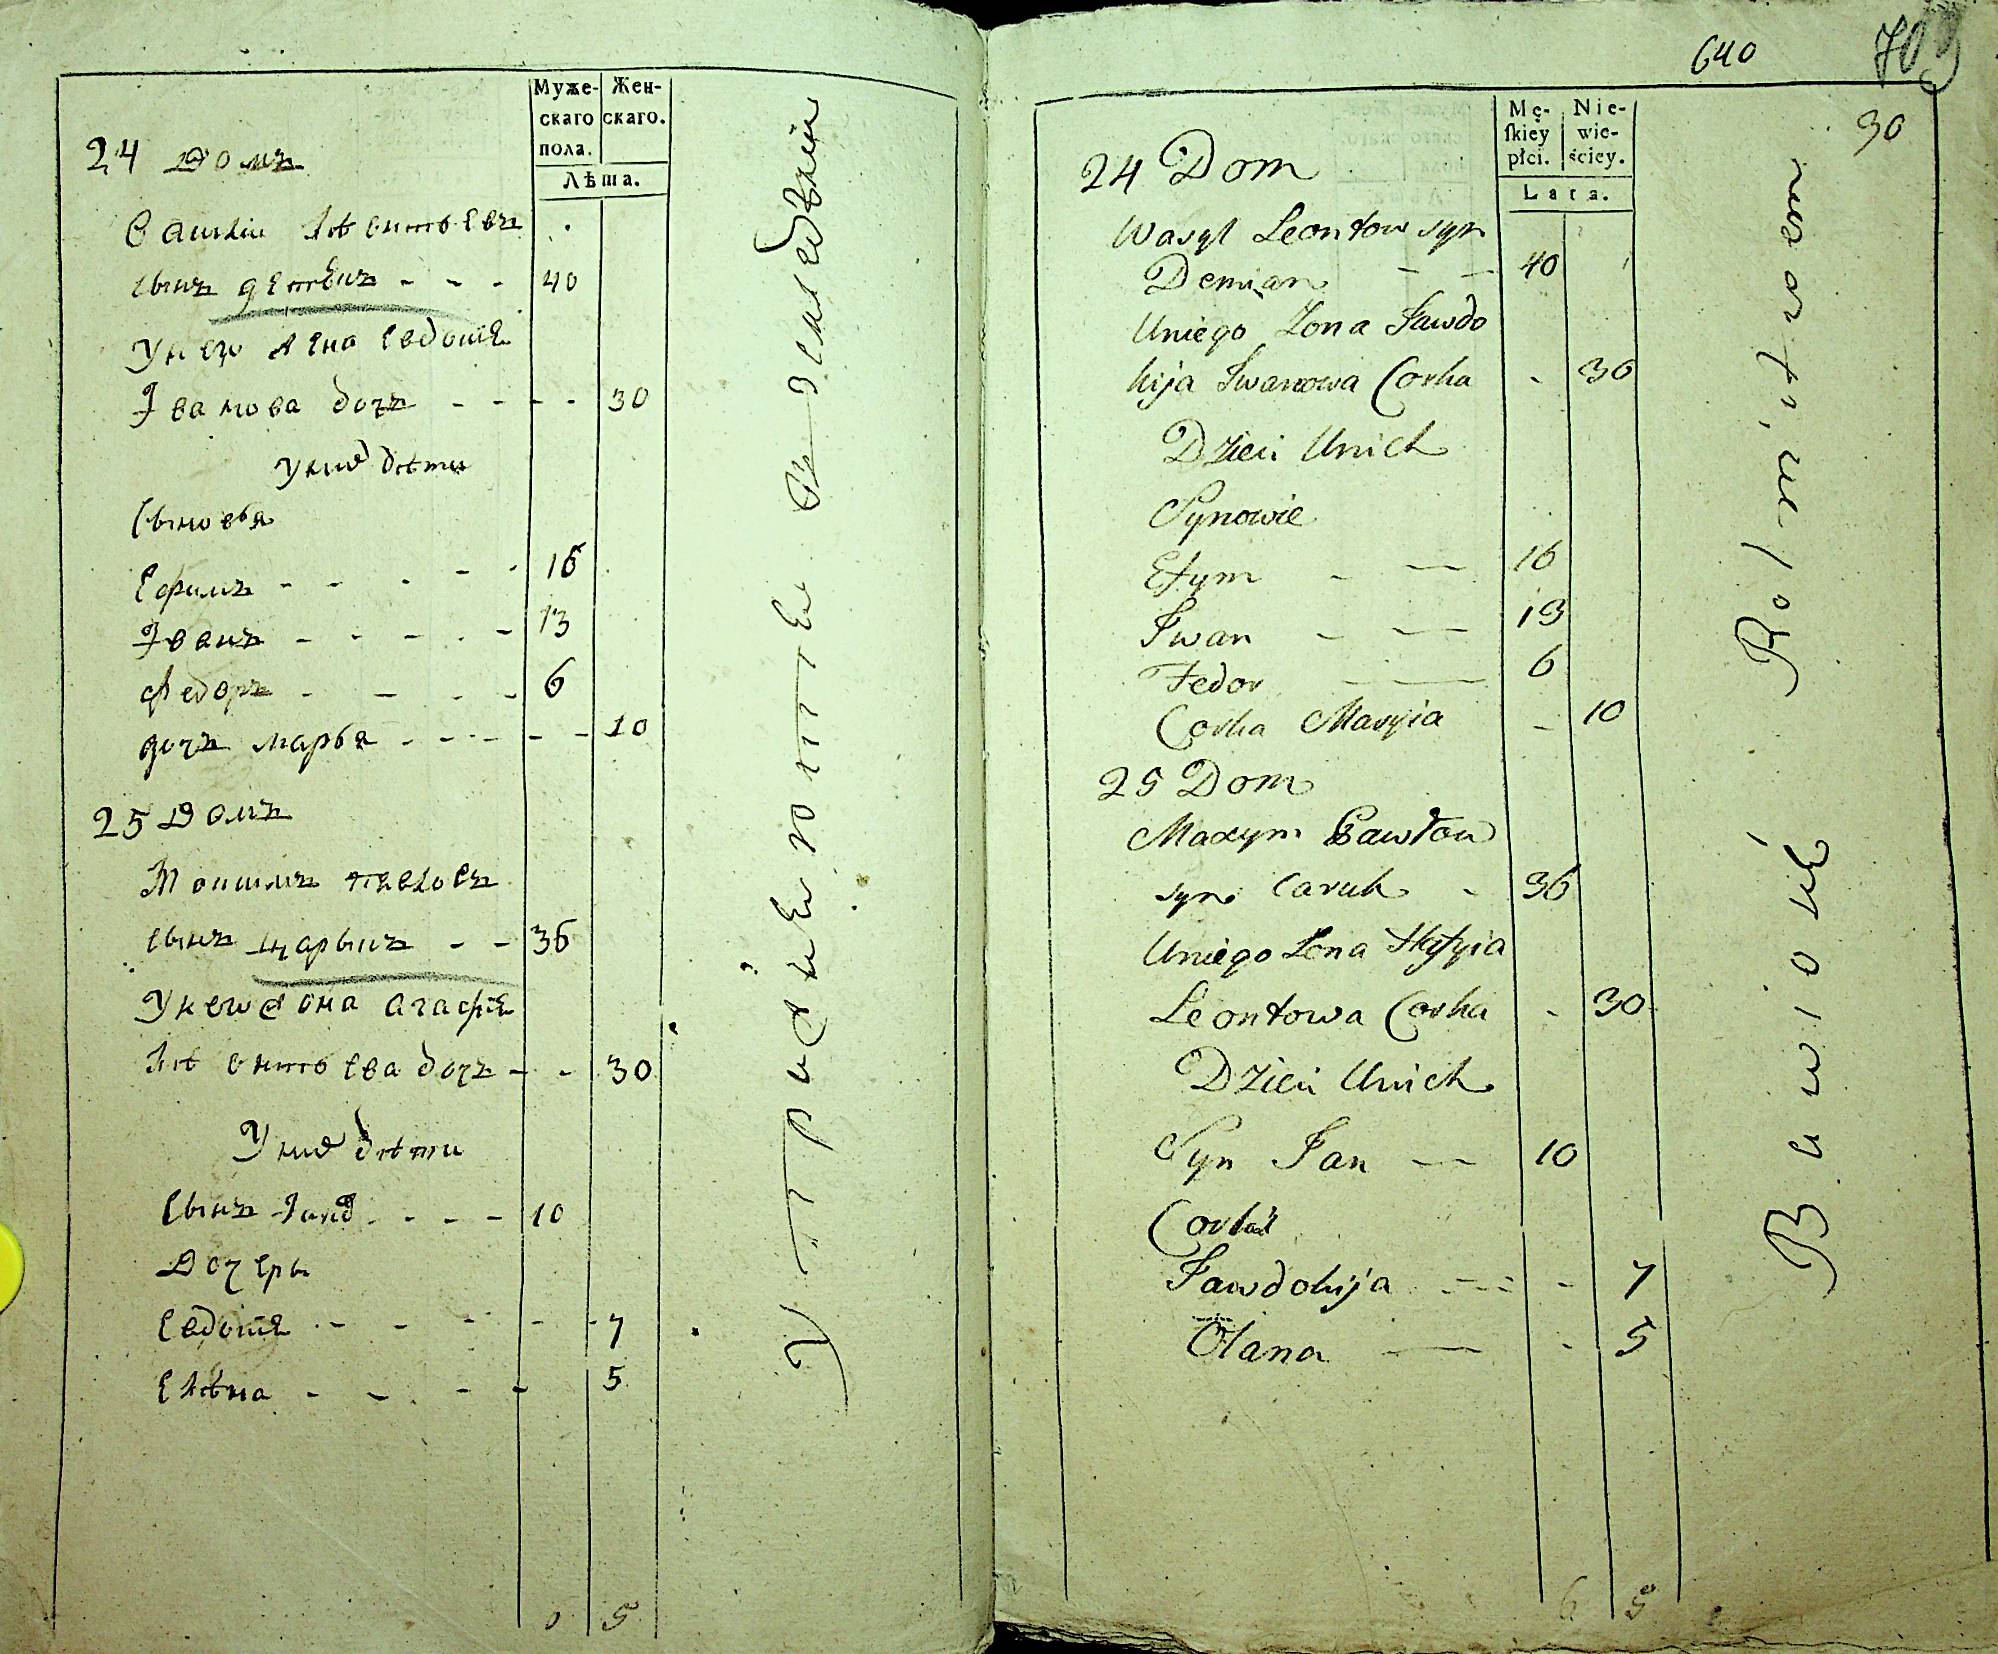 Муже- Жен-
скаго скаго.
пола.
Лѣта.
24 Домъ
Василiи Лѣонтьевъ
сынъ демѣнъ - - - 40
У него жена Евдокiѣ
Iванова дочъ - - - - 30
У них дѣти
Сыновья
Ефимъ - - - - - 16
Iванъ - - - - - 13
Федоръ - - - - 6
дочъ марья - - - - - - 10
25 Домъ
Маѯимъ павловъ
сынъ царыкъ - - 36
У него жена агафiѣ
Лѣонтьева дочъ - - 30
У них дѣти
Сынъ Iанъ - - - - 10
Дочеры
Евдокiя - - - - - 7
Елѣна - - - - 5
Упражнѣютъсѣ въ земледѣлiи
5
640
709
30
Mę- Nie-
skiey wie-
płci. ściey.
Lata.
24 Dom
Wasyl Leontow syn
Demian - - 40
Uniego Zona Jawdo
kija Iwanowa Corka - 30
Dzieci Unich
Synowie
Efym - — 16
Iwan - — 13
Fedor — 6
Corka Maryia - 10
25 Dom
Maxym Pawłow
syn Caruk - 36
Uniego Zona Hafyia
Leontowa Corka - 30
Dzieci Unich
Syn Jan — 10
Corki
Jawdokija - - - - 7
Olana — - 5
Bawiąć Rolnictwem
6 5